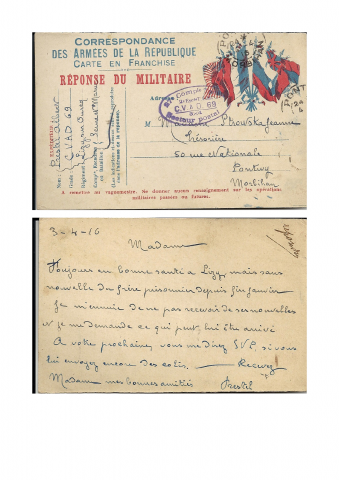 CORRESPONDANCE
DES ARMÉES DE LA RÉPUBLIQUE
CARTE EN FRANCHISE
RÉPONSE DU MILITAIRE
C.V.A.D. 69
Secteur Postal
EXPÉDITEUR
Nom :
Grade : C.V.A.D 69
Adresse
M Ptrowska Jeanne
Trésorière
50 rue Nationale
Pontivy
Morbihan
A remettre au vaguemestre. Ne donner aucun renseignement sur les opérations
militaires passées ou futures.
3-4-16
réponse
Madame
Toujours en bonne santé à Lizy, mais sans
nouvelle du frère prisonnier depuis fin janvier
Je m'ennuie de ne pas recevoir de ses nouvelles
et je me demande ce qui peut lui être arrivé
A votre prochaine, vous me direz SVP, si vous
lui envoyez encore des colis. — Recevez
Madame mes bonnes amitiés